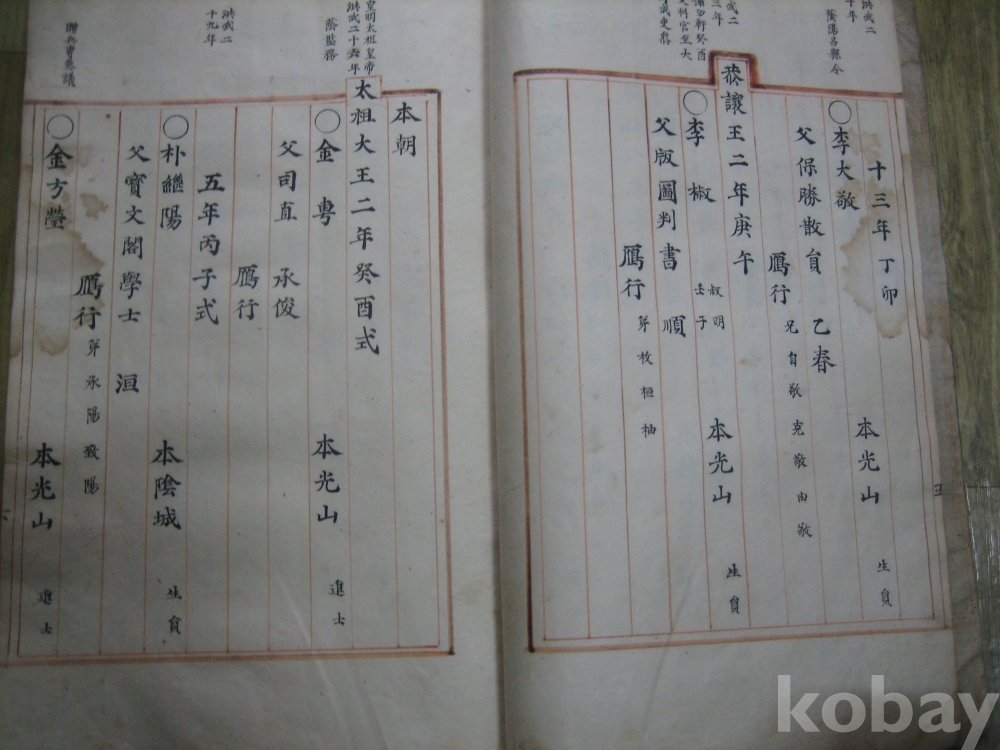 洪武二
十年
蔭陽昌縣令
十三年丁卯
〇李大敬 本光山 生員
父保勝散員 乙春
鴈行 兄自敬克敬由敬
武二
三年
軒癸酉
文科官至大
恭讓王二年庚午
〇李椒 叔明 壬子 本光山 生員
父版圖判書 順
鴈行 弟枚桓柚
五
本朝
皇明太祖皇帝
洪武二十六年
蔭監務
太祖大王二年癸酉式
〇金粤 本光山 進士
父司直 承俊
鴈行
洪武二
十九年
五年丙子式
〇朴繼陽 本陰城 生員
父寶文閣學士 洹
鴈行 弟承陽致陽
贈兵曹叅議
〇金方瑩 本光山 進士
六
kobay